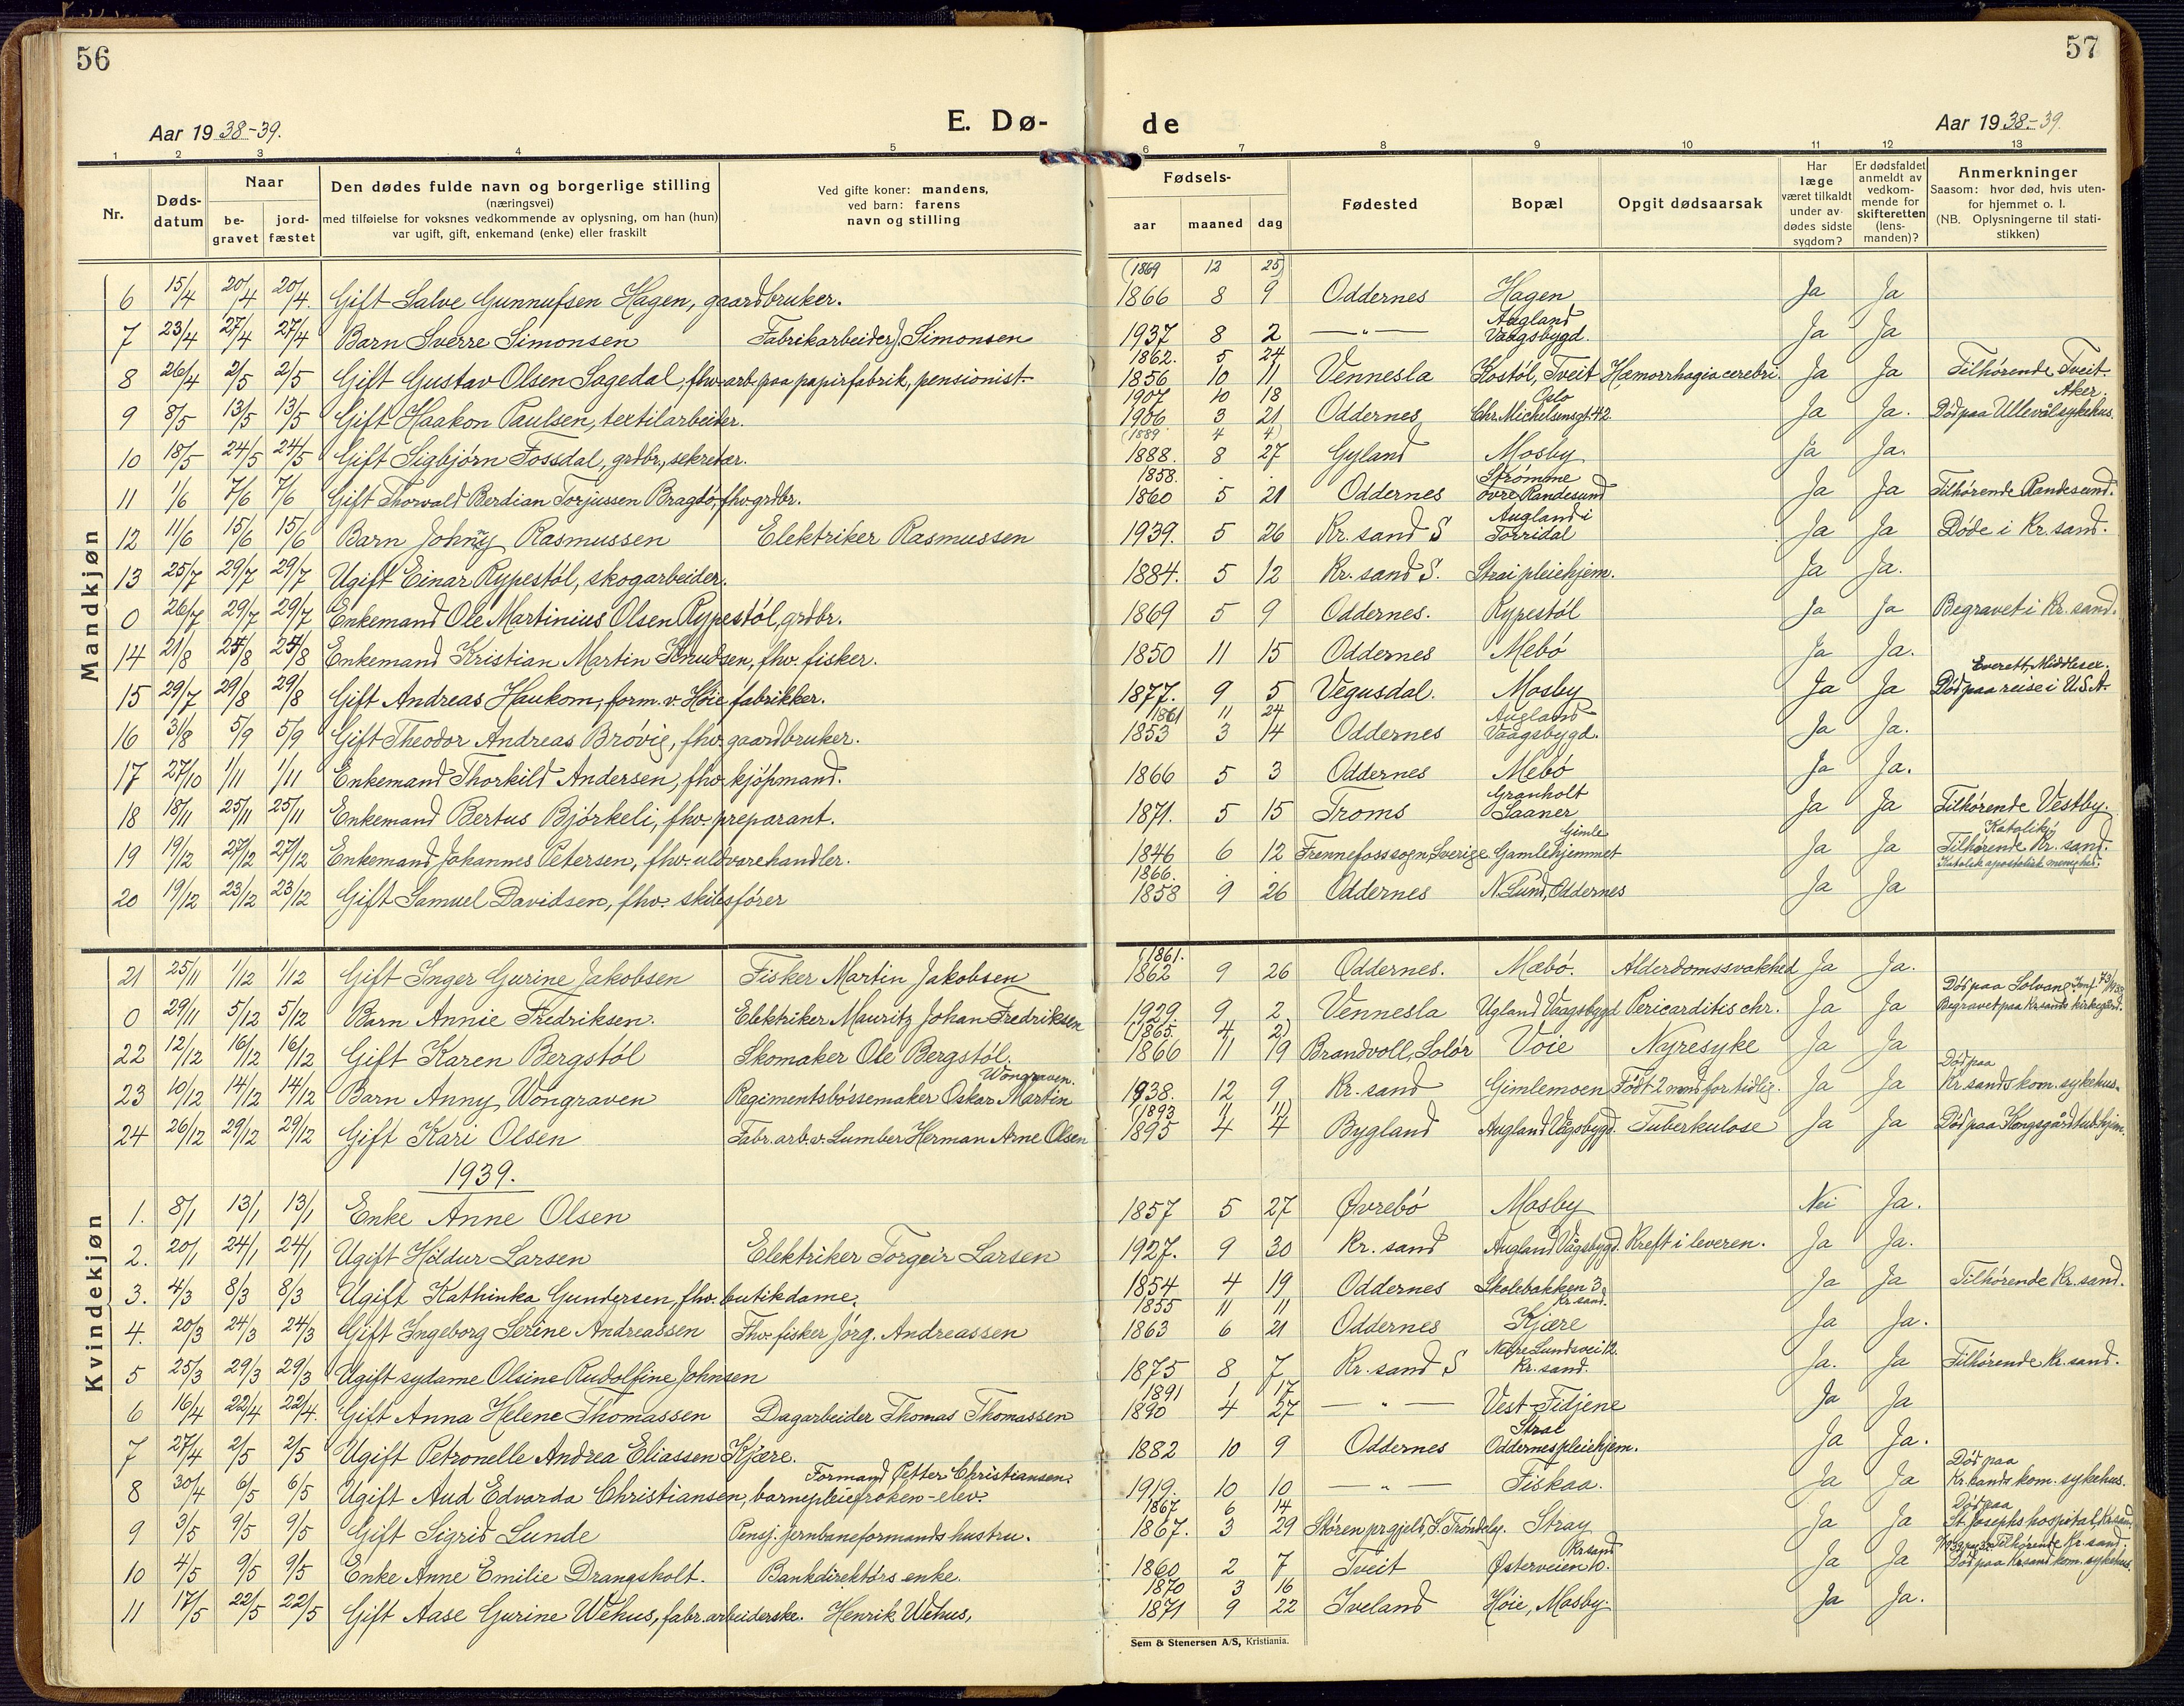 56
57
Aar 1938-39.
E. Dø-
de
Aar 1938-39.
1 2 3 4 5 6 7 8 9 10 11 12 13
Nr.
Døds-
datum
Naar
be-
gravet
jord-
fæstet
Den dødes fulde navn og borgerlige stilling
(næringsvei)
med tilføielse for voksnes vedkommende av oplysning, om han (hun)
var ugift, gift, enkemand (enke) eller fraskilt
Ved gifte koner: mandens,
ved barn: farens
navn og stilling
Fødsels-
aar
maaned
dag
Fødested
Bopæl
Opgit dødsaarsak
Har
læge
været tilkaldt
under av-
dødes sidste
sygdom?
Er dødsfaldet
anmeldt av
vedkom-
mende for
skifteretten
(lens-
manden)?
Anmerkninger
Saasom: hvor død, hvis uten-
for hjemmet o. l.
(NB. Oplysningerne til stati-
stikken)
Mandkjøn
(1869 12 25)
6 15/4 20/4 20/4. Gift Salve Gunnufsen Hagen, gaardbruker. 1866 8 9 Oddernes Hagen Ja Ja
Augland
7 23/4 27/4 27/4 Barn Sverre Simonsen Fabrikarbeider J. Simonsen 1937 8 2 — " — Vaagsbygd. Ja Ja
1862. 5 24
8 26/4 2/5 2/5 Gift Gustav Olsen Sagedal, fhv. arb. paa papirfabrik, pensionist. 1856 10 11 Vennesla Kostøl, Tveit Hæmorrhagia cerebri. Ja Ja Tilhørende Tveit.
1907 10 18 Oslo Aker.
9 8/5 13/5 13/5 Gift Haakon Paulsen, textilarbeider. 1906 3 21 Oddernes Chr. Michelsensgt. 42. Ja Ja. Død paa Ullevål sykehus.
(1889 4 4)
10 18/5 24/5 24/5 Gift Sigbjørn Fossdal, grdbr., sekretær. 1888. 8 27 Gyland Mosby Ja Ja.
1858. . . Strømme
11 1/6 7/6 7/6 Gift Thorvald Berdian Torjussen Bragdø, fhv. grdbr. 1860 5 21 Oddernes øvre, Randesund Ja Ja Tilhørende Randesund.
Augland i
12 11/6 15/6 15/6 Barn Johnny Rasmussen Elektriker Rasmussen 1939. 5 26 Kr.sand S Torridal Ja Ja Døde i Kr.sand.
13 25/7 29/7 29/7 Ugift Einar Rypestøl, skogarbeider. 1884. 5 12 Kr.sand S. Strai pleiehjem. Ja Ja.
0 26/7 29/7 29/7 Enkemand Ole Martinius Olsen Rypestøl, grdbr. 1869 5 9 Oddernes. Rypestøl Ja Ja Begravet i Kr.sand.
14 21/8 25/8 25/8 Enkemand Kristian Martin Knudsen, fhv. fisker. 1850 11 15 Oddernes Mebø Ja Ja.
Everett, Middlesex.
15 29/7 29/8 29/8 Gift Andreas Haukom, form. v. Høie fabrikker. 1877. 9 5 Vegusdal. Mosby Ja Ja Død paa reise i U.S.A.
1861 11 24 Augland
16 31/8 5/9 5/9 Gift Theodor Andreas Brøvig, fhv. gaardbruker. 1853 3 14 Oddernes Vaagsbygd. Ja Ja.
17 27/10 1/11 1/11 Enkemand Thorkild Andersen, fhv. kjøpmand. 1866 5 3 Oddernes Mebø Ja Ja.
Granholt
18 18/11 25/11 25/11 Enkemand Bertus Bjørkeli, fhv. preparant. 1871. 5 15 Troms Saaner Ja Ja Tilhørende Vestby.
Gimle Katolikk
19 19/12 27/12 27/12 Enkemand Johannes Petersen, fhv. uldvarehandler. 1846 6 12 Frennefoss sogn, Sverige Gamlehjemmet Ja Ja Tilhørende Kr.sand.
1866. Katolsk apostolisk menighed.
20 19/12 23/12 23/12 Gift Samuel Davidsen, fhv. skibsfører 1858 9 26 Oddernes N. Lund, Oddernes Ja Ja
Kvindekjøn
(1861.
21 25/11 1/12 1/12 Gift Inger Gurine Jakobsen Fisker Martin Jakobsen 1862 9 26 Oddernes. Mæbø. Alderdomssvakhed Ja Ja.
Død paa Solvang
0 29/11 5/12 5/12 Barn Annie Fredriksen. Elektriker Mauritz Johan Fredriksen 1929. 9 2 Vennesla Ugland Vaagsbygd Pericarditis chr. Ja Ja Begravet paa Kr.sands kirkegård.
(1865. 4 2)
22 12/12 16/12 16/12 Gift Karen Bergstøl Skomaker Ole Bergstøl. 1866 11 19 Brandvoll, Solør Voie Nyresyke Ja Ja
Wongraven. Død paa
23 10/12 14/12 14/12 Barn Anny Wongraven Regimentsbørsemaker Oskar Martin 1938. 12 9 Kr.sand Gimlemoen Født 2 mnd for tidlig. Ja Ja Kr.sands kom. sykehus.
(1893 11 14)
24 26/12 29/12 29/12 Gift Kari Olsen Fabr. arb. v. Lumber Herman Arne Olsen 1895 4 4 Bygland Augland Vågsbygd. Tuberkulose Ja Ja Død paa Kongsgård tub.hjem.
1939.
1. 8/1 13/1 13/1 Enke Anne Olsen 1857 5 27 Øvrebø Mosby Nei Ja.
2. 20/1 24/1 24/1 Ugift Hildur Larsen Elektriker Torgeir Larsen 1927. 9 30 Kr.sand Augland Vågsbygd. Kreft i leveren. Ja Ja.
3. 4/3 8/3 8/3 Ugift Kathinka Gundersen, fhv. butikdame. 1854 4 19 Oddernes Skolebakken 3 Ja Ja Tilhørende Kr.sand.
1855 11 11 Kr.sand.
4. 20/3 24/3 24/3 Gift Ingeborg Serine Andreassen Fhv. fisker Jørg. Andreassen 1863 6 21 Oddernes Kjære Ja Ja.
Nedre Lundsvei 12.
5 25/3 29/3 29/3 Ugift sydame Olsine Rudolfine Johnsen 1875 8 7 Kr.sand S Kr.sand. Ja. Ja Tilhørende Kr.sand.
1891 1 17
6 16/4 22/4 22/4. Gift Anna Helene Thomassen Dagarbeider Thomas Thomassen 1890 4 27 — " — Vest-Fidjene Ja Ja
Strai
7 27/4 2/5 2/5 Ugift Petronelle Andrea Eliassen Kjære. 1882 10 9 Oddernes Oddernes pleiehjem. Ja Ja.
Formand Petter Christiansen. Død paa
8 30/4 6/5 6/5 Ugift Aud Edvarda Christiansen, barnepleiefrøken-elev. 1919. 10 10 — " — Fiskaa. Ja Ja Kr.sands kom. sykehus.
1867 6 14 Død paa
9 3/5 9/5 9/5 Gift Sigrid Lunde Pensj. jernbaneformands hustru. 1867. 3 29 Støren prgjeld, S. Trøndelg. Stray Ja Ja St. Josephs hospital, Kr.sand.
Kr.sand Tilhørende Kr.sand.
10 4/5 9/5 9/5 Enke Anne Emilie Drangsholt. Bankdirektørs enke. 1860 2 7 Tveit Østerveien 10. Ja Ja Død paa Kr.sand kom. sykehus.
1870 3 16
11 17/5 22/5 22/5 Gift Aase Gurine Wehus, fabr. arbeiderske. Henrik Wehus, 1871 9 22 Iveland Høie, Mosby. Ja Ja.
Sem & Stenersen A/S, Kristiania.